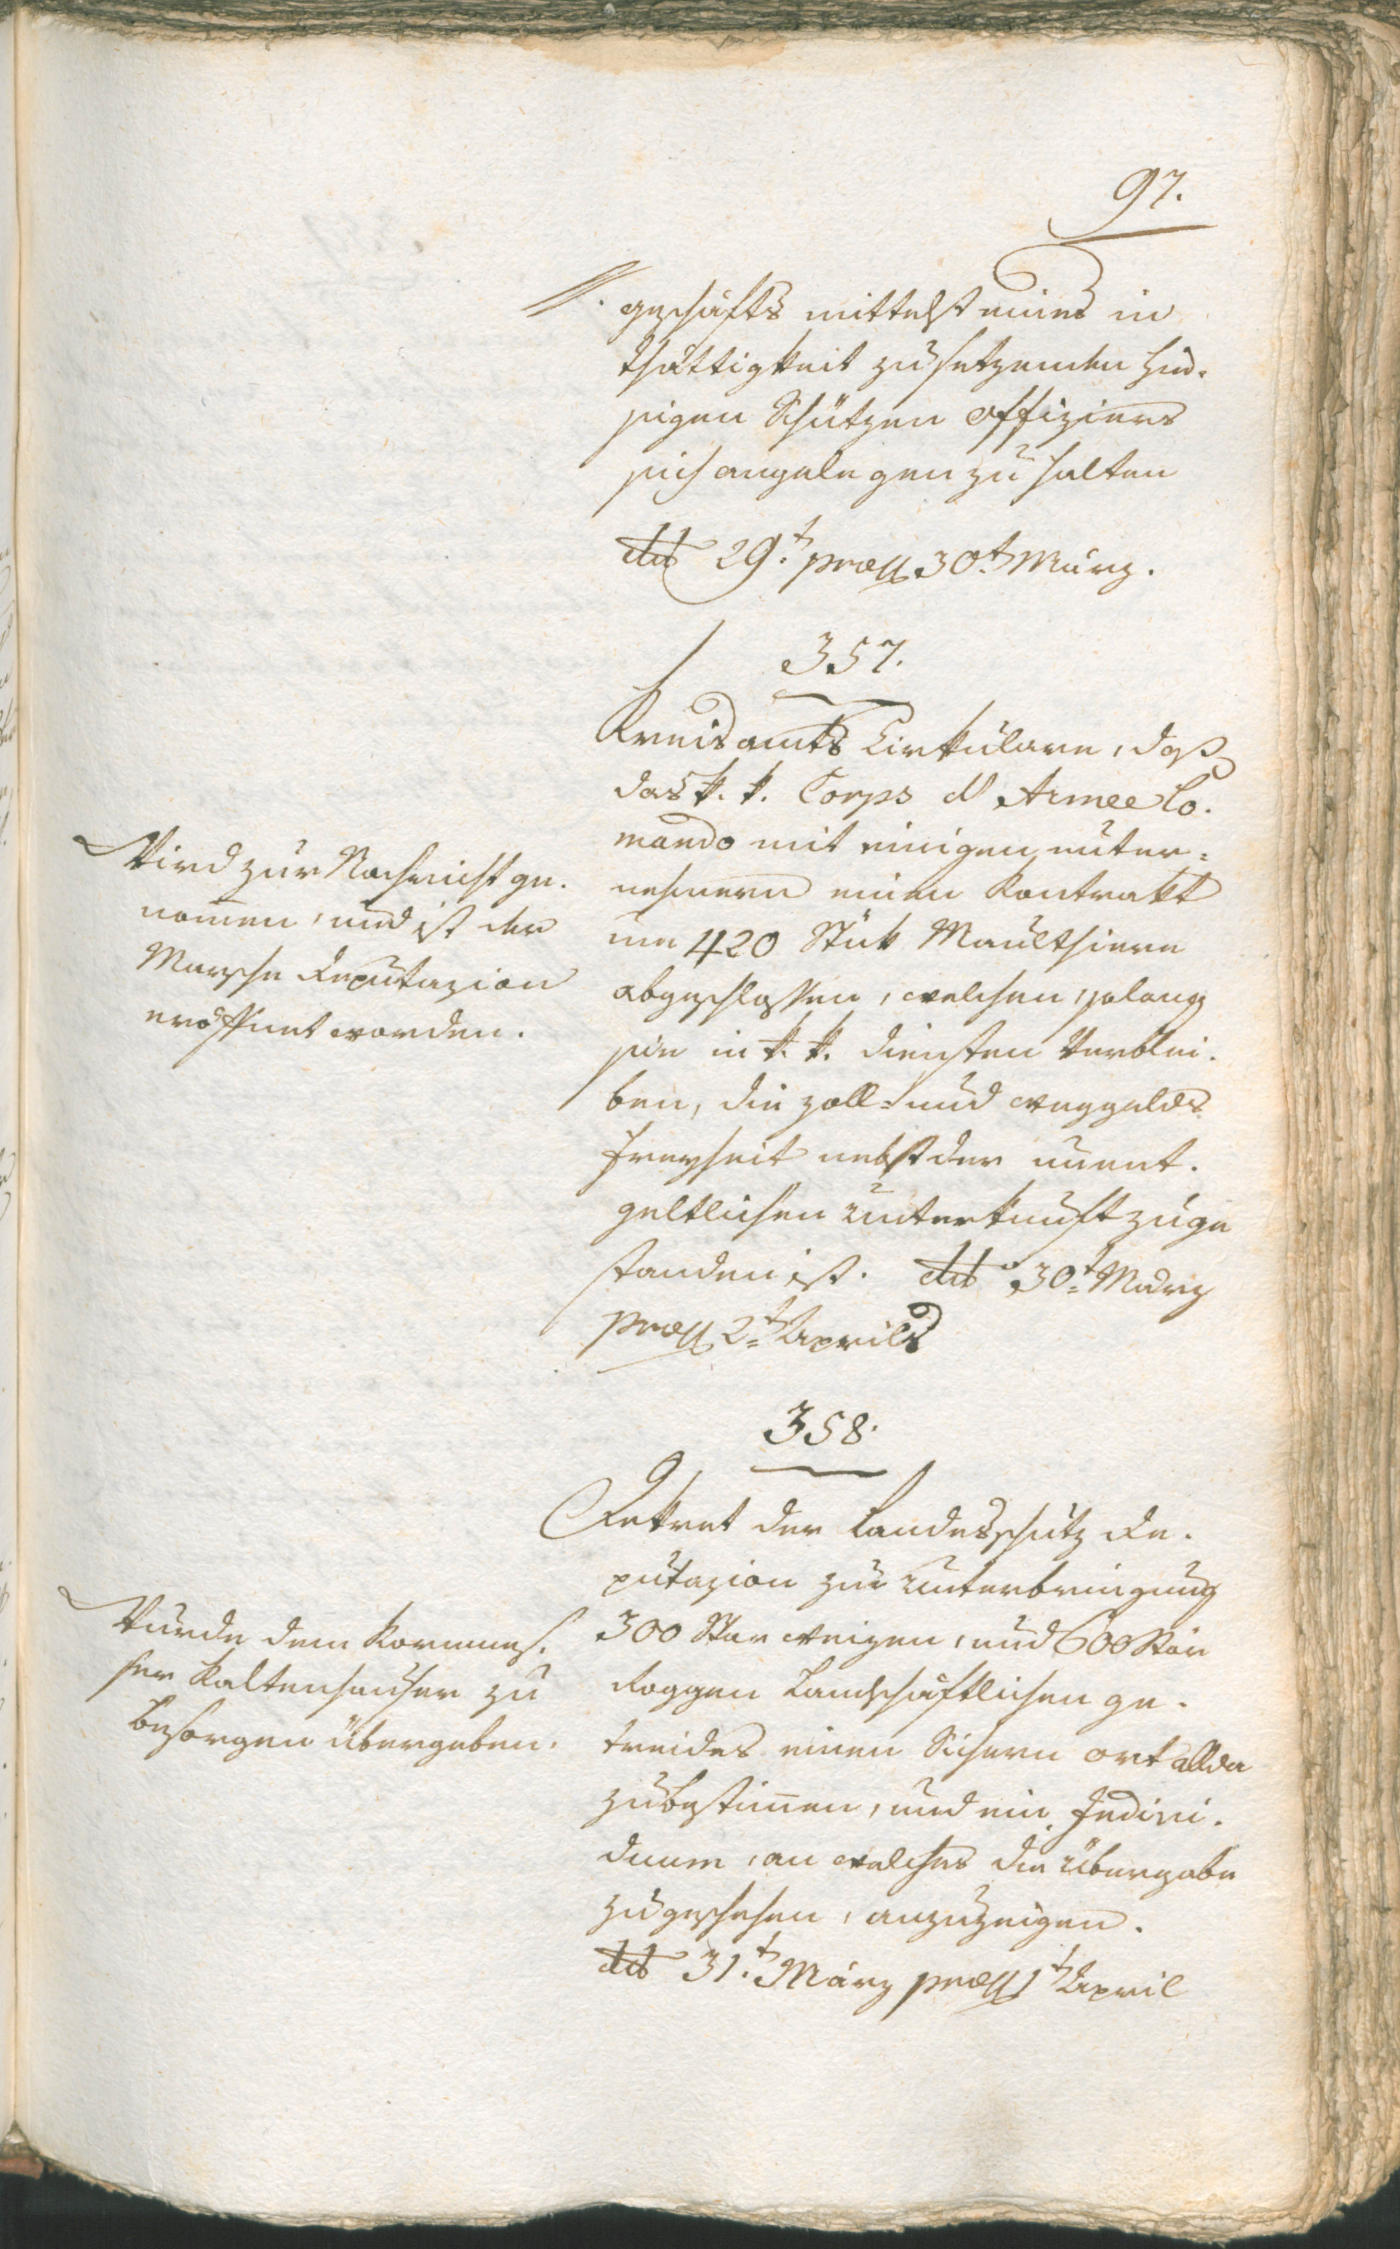 97.
geschäfts mittelst eines in
thättigkeit zu setzenden hie-
sigen Schützen Offiziers
sich angelegen zu halten
ddt 29.t præss 30.t März.
357.
Kreisamts Cirkulare, daß
das k. k. Corps d'Armee Co-
mando mit einigen unter-
nehmern einen Kontrakt
um 420 Stük Maulthiere
abgeschlossen, welchen, solang
sie in k. k. diensten verblei-
ben, die zoll- und weggelds
freyheit nebst der unent-
geltlichen unterkunft zuge
standen ist. ddt 30.t März
præss 2.t Aprils
Wird zur Nachricht ge-
nomen, und ist der
Marsche Deputazion
eröffnet worden.
358.
Dekret der Landesschutz De-
putazion zur unterbringung
300 Star weizen, und 600 Star
Roggen Landschäftlichen ge-
treides einen Sichern ort allda
zubestimen, und ein Indivi-
duum, an welches die übergabe
zu geschehen, anzuzeigen.
ddt 31.t März præss 1.t April
Wurde dem Kornmes-
ser Kaltenhauser zu
besorgen übergeben.